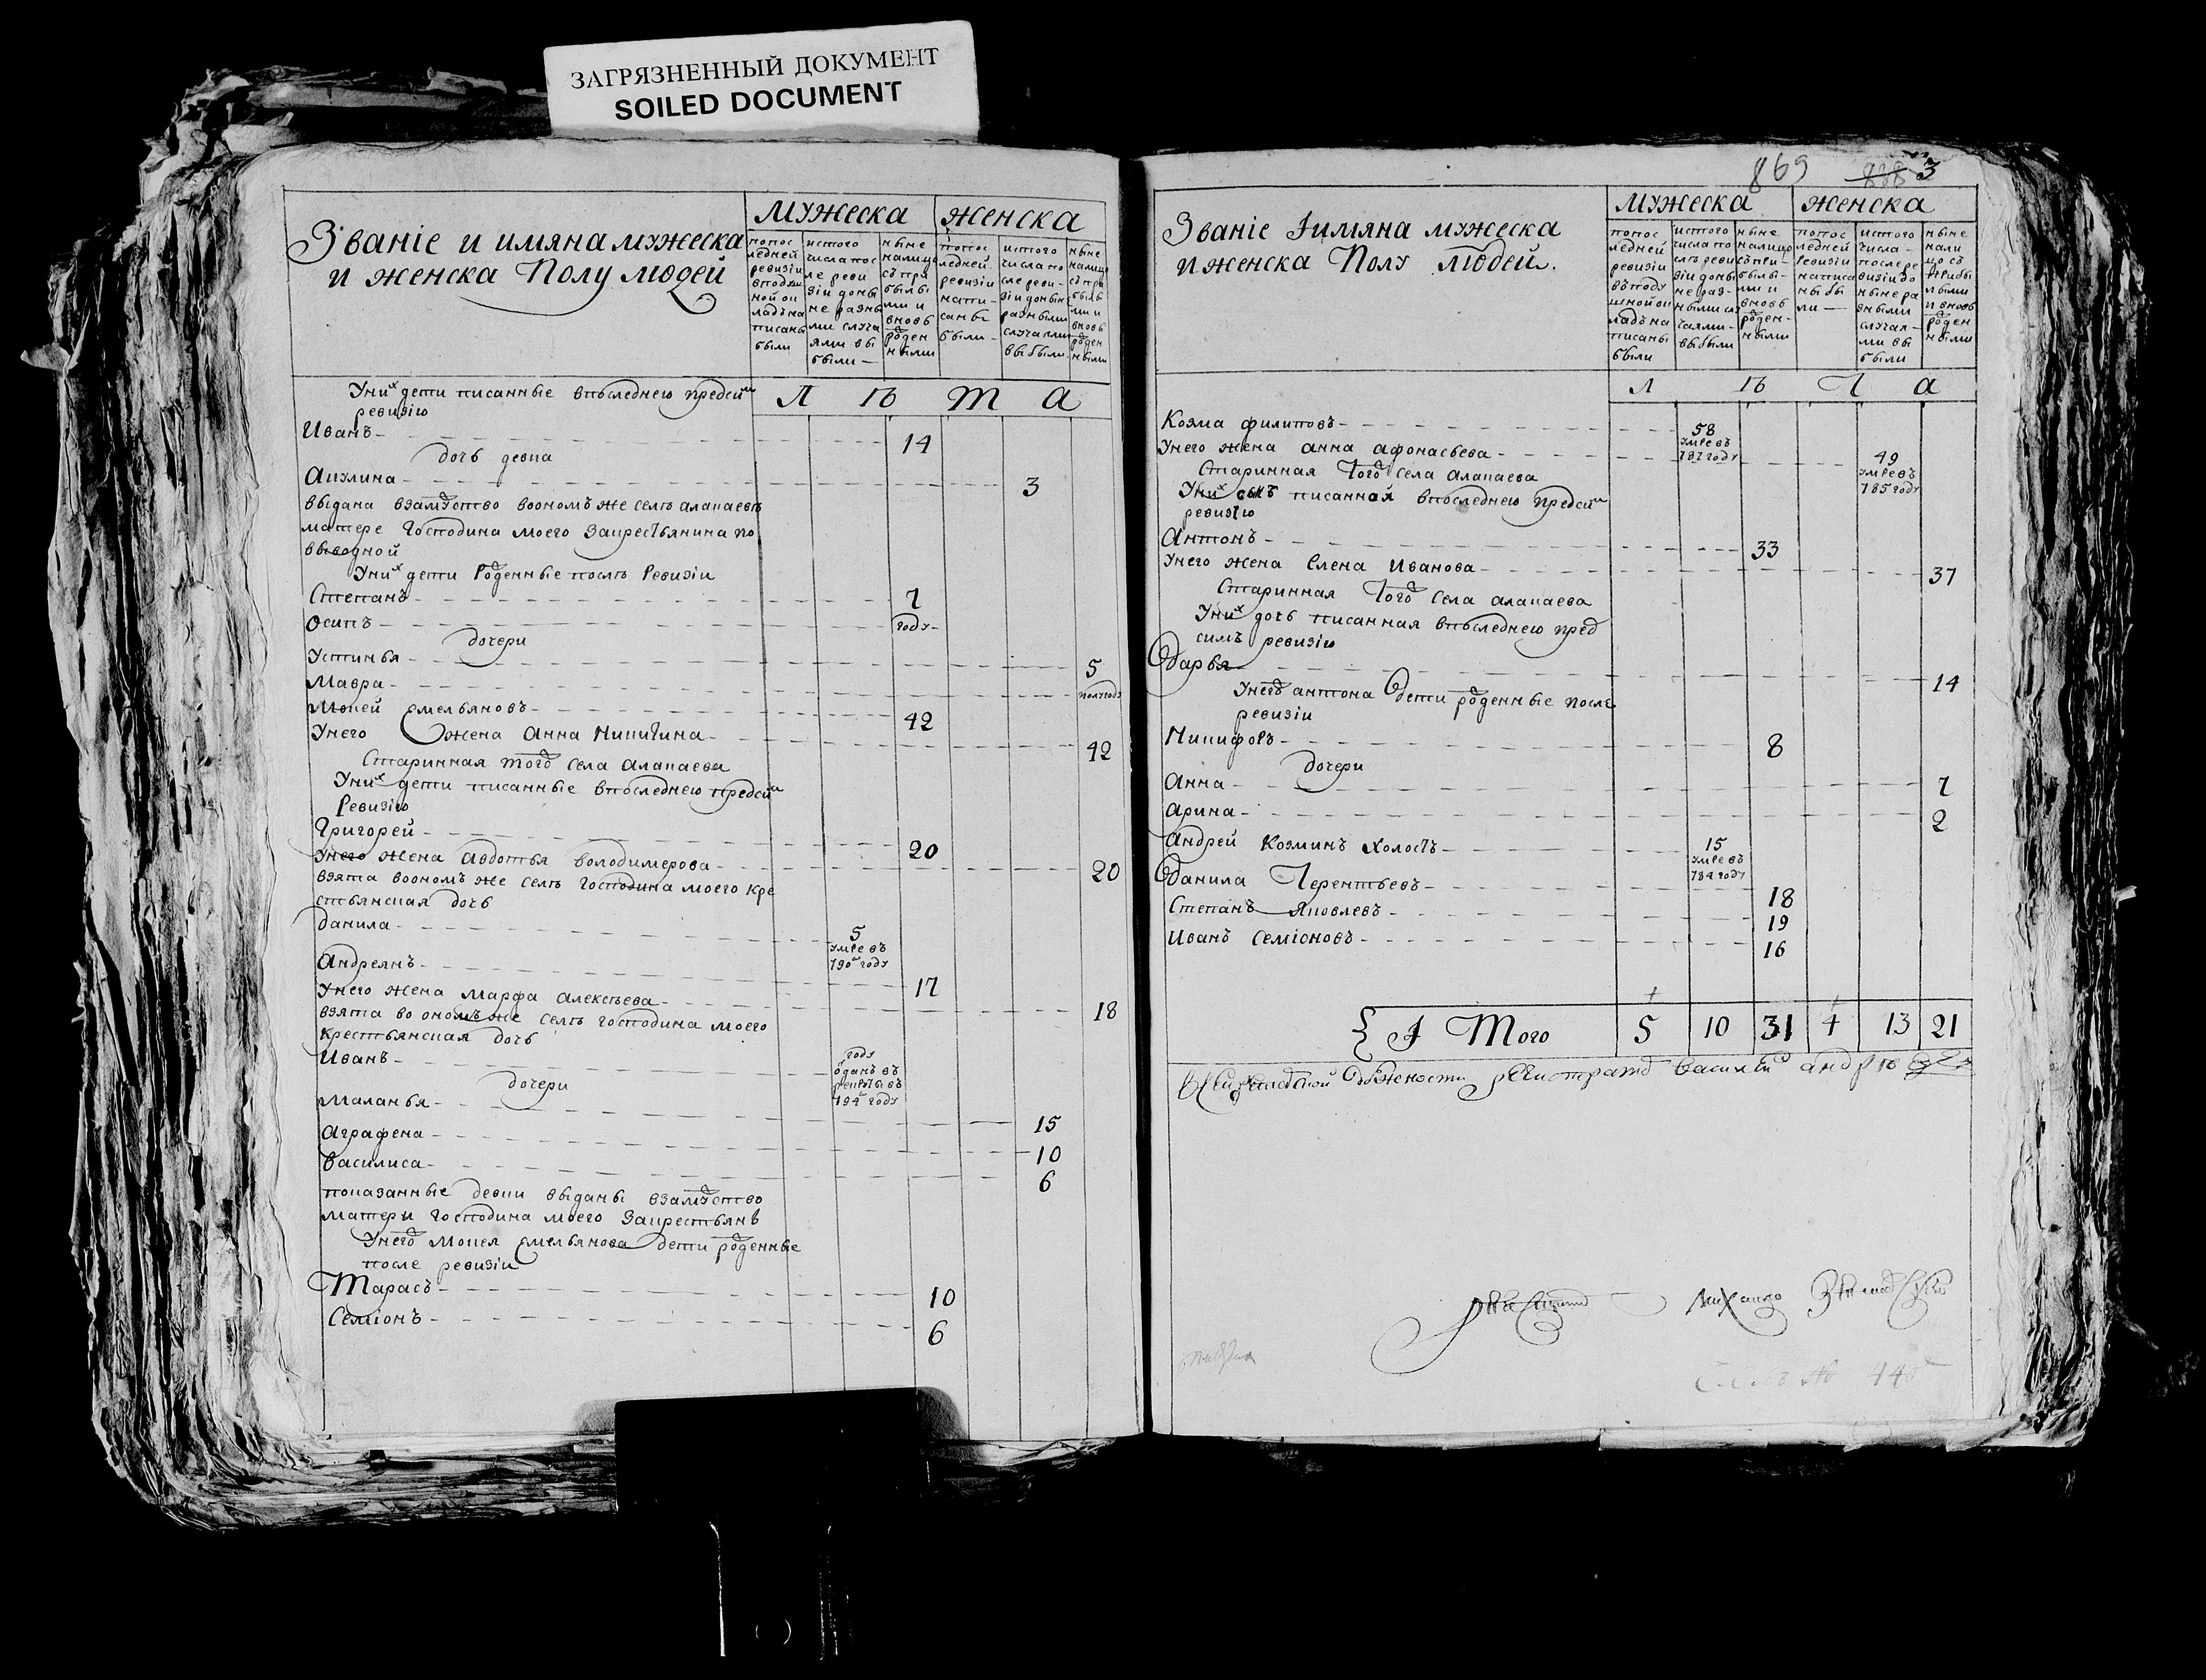 ЗАГРЯЗНЕННЫЙ ДОКУМЕНТ
SOILED DOCUMENT
Званіе и имяна мужеска
и женска Полу людей
мужеска
женска
попос
ледней
ревизіи
вподуш
ной ок
ладъ на
писаны
были
истого
числа пос
ле реви
зіи доны
не разны
ми случа
ями вы
были
ныне
налицо
съ при
былы
ми и
вновь
рожден
ными
попос
ледней
ревизіи
напи-
саны
были
истого
числа по
сле реви-
зіи донын
разными
случаями
выбыли
ныне
налицо
съ при
былы
ми и
вновь
рожден
ными
Л ѣ т а
Уних дети писанные впоследнею предсим
ревизію
Иванъ 14
дочь девка
Акулина 3
выдана взамужство вооном же селѣ алапаевѣ
матере Господина моего Закрестьянина по
выводной
Уних дети Рожденные послѣ Ревизіи
Степанъ 7
Осипъ году
дочери
Устинья 5
Мавра полугоду
Мокей емельяновъ 42
Унего жена Анна Никитина 42
Старинная того села Алапаева
Уних дети писанные впоследнею предсим
Ревизію
Григорей 20
Унего жена Авдотья володимерова 20
взята вооном же селѣ Господина моего кре
стьянская дочь
Данила 5
умре въ
790м году
Андреянъ 17
Унего жена Марфа Алексѣева 18
взята во оном же селѣ господина моего
крестьянская дочь
Иванъ году
отданъ въ
рекруты въ
794м году
дочери
Маланья 15
Аграфена 10
Василиса 6
показанные девки выданы взамужство
матери Господина моего Закрестьянъ
Унего Мокея Емельянова дети рожденные
после ревизіи
Тарасъ 10
Семіонъ 6
869 3
Званіе Iимяна мужеска
и женска Полу людей.
мужеска
женска
попос
ледней
ревизіи
въ поду
шной ок
ладъ на
писаны
были
истого
числа по
слѣ реви
зіи доны
не раз-
ными слу
чаями
выбыли
ныне
налицо
съ при-
былы-
ми и
вновь
рожден-
ными
попос
ледней
ревизіи
написа
ны бы
ли
истого
числа
после ре
визіи до
ныне ра
зными
случая-
ми вы
были
ныне
нали
цо съ
прибы
лыми
и вновь
рожден
ными
Л ѣ Т а
Козма филиповъ 58
умре въ
787 году
Унего жена анна афонасьева 49
умре въ
785 году
Старинная Того села алапаева
Уних сынъ писанной впоследнею предсим
ревизію
Антонъ 33
Унего жена Елена Иванова 37
Старинная Того села алапаева
Уних дочь писанная впоследнею пред
симъ ревизію
Дарья 14
Унего антона Дети рожденные после
ревизіи
Никифоръ 8
дочери
Анна 7
Арина 2
Андрей Козминъ Холостъ 15
умре въ
784 году
Данила Терентьевъ 18
Степанъ Яковлевъ 19
Иванъ Семіоновъ 16
И Того 5 10 31 4 13 21
регистратор Василий
Михайло